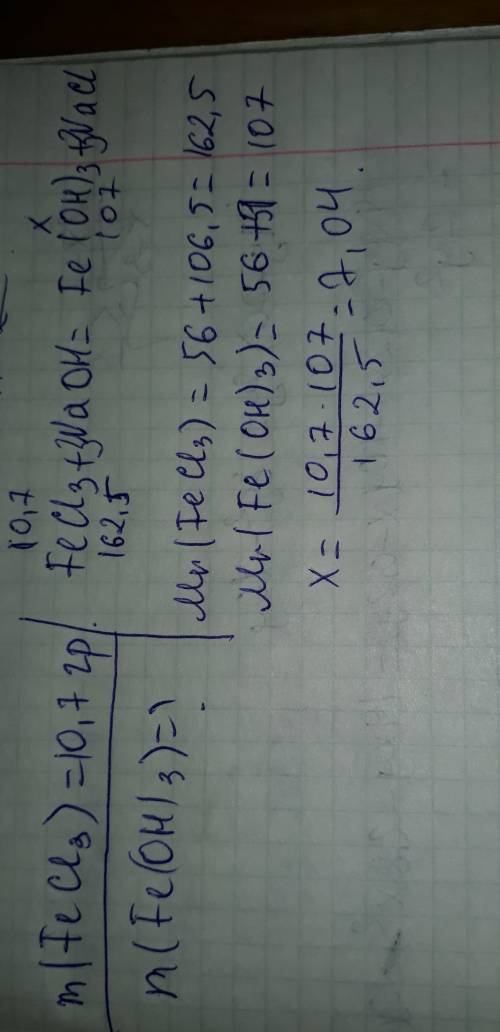 m(FeCl₃)=10,7 гр.
m(Fe(OH)₃)=?
10,7 x
FeCl₃+3NaOH=Fe(OH)₃+3NaCl
162,5 107
Mr(FeCl₃)=56+106,5=162,5
Mr(Fe(OH)₃)=56+51=107
x=10,7·107/162,5=7,04.